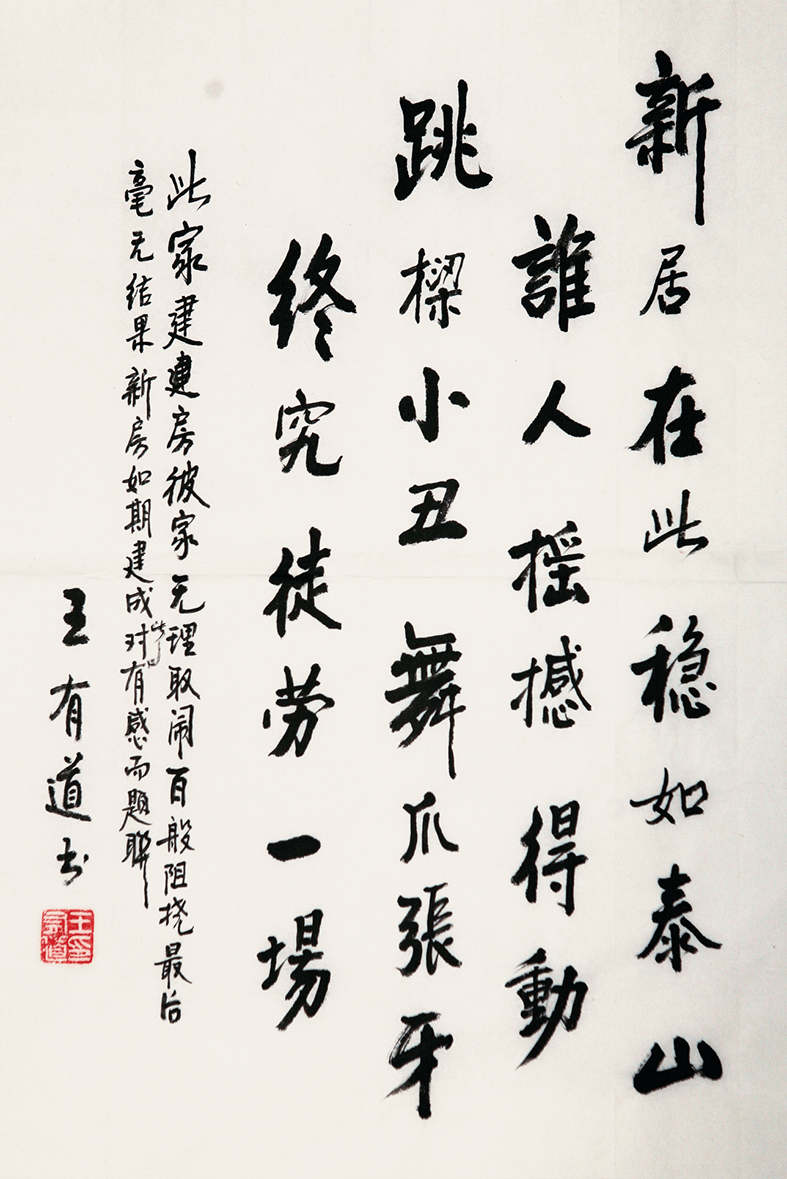 新居在此穏如泰山
誰人摇撼得動
跳樑小丑舞爪張牙
終究徒劳一場
此家建建房彼家无理取闹百般阻挠最后
毫无结果新房如期建成对此有感而题联
王有道书